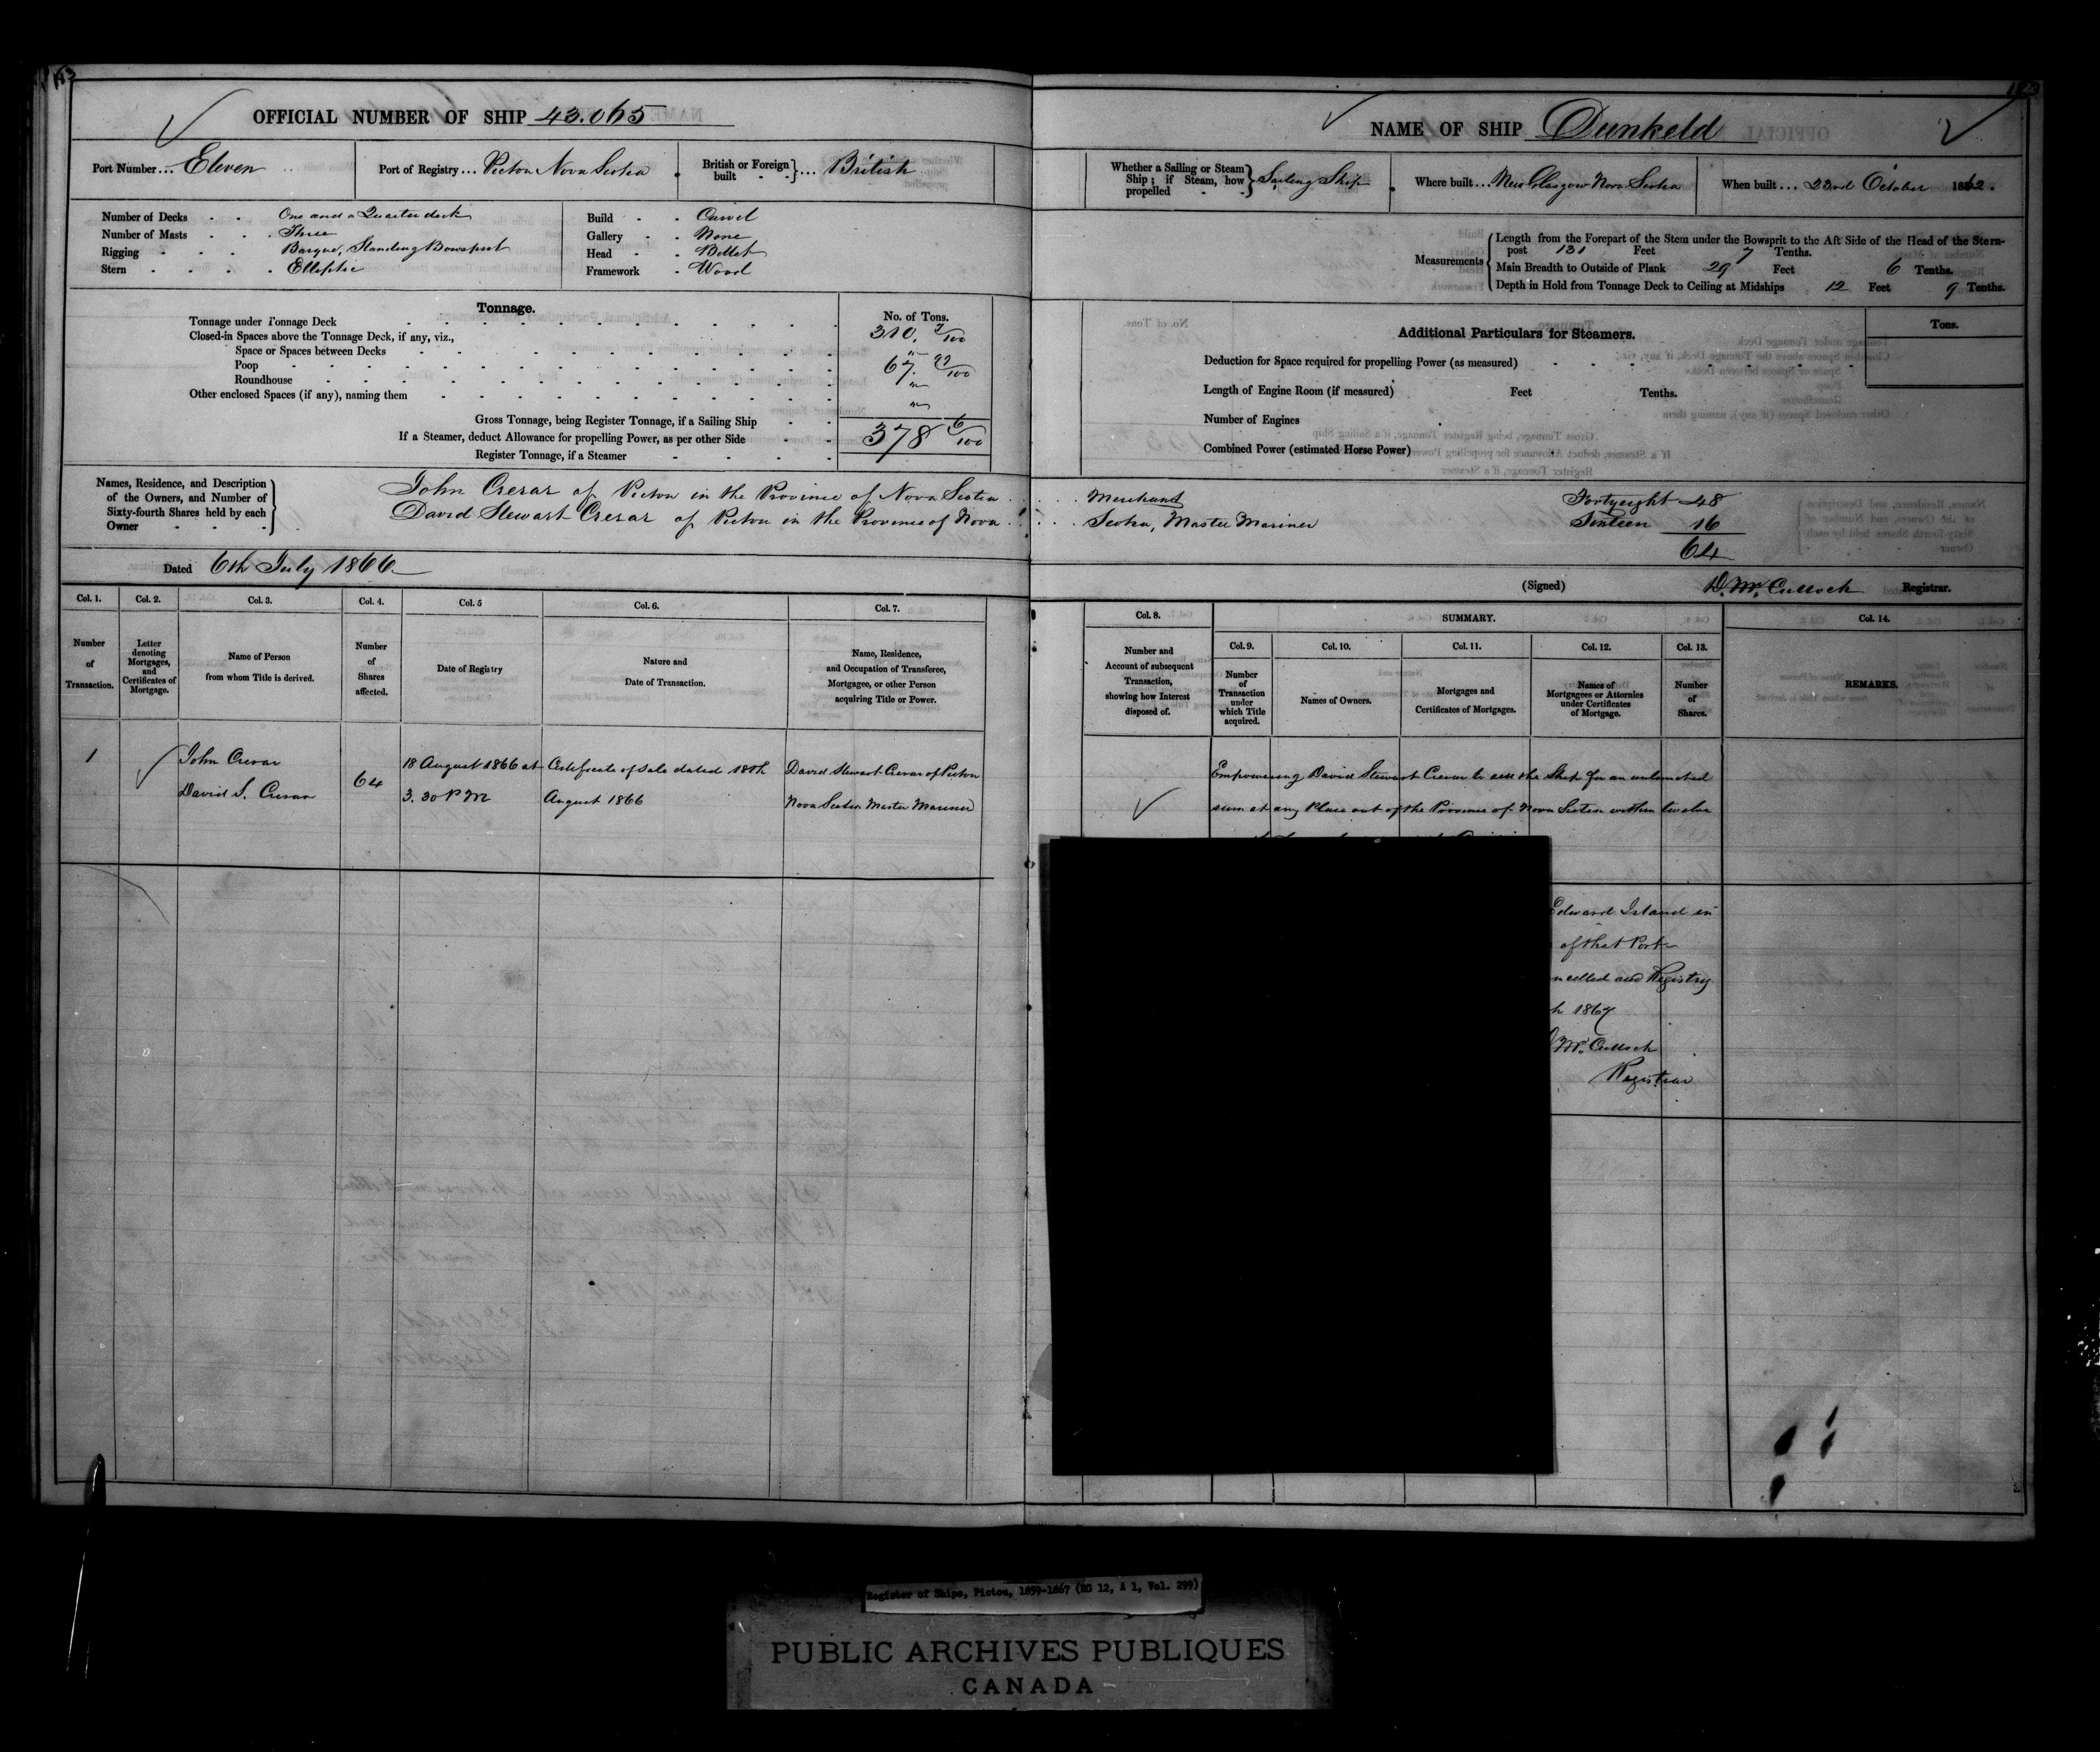 OFFICIAL NUMBER OF SHIP 43.065
Port Number... Eleven
Port of Registry... Pictou Nova Scotia
British or Foreign built - - } ... British
Number of Decks - - One and a Quarter deck
Number of Masts - - Three
Rigging - - Barque, Standing Bowsprit
Stern - - - - Elliptic
Build - - Carvel
Gallery - - None
Head - - Billet
Framework - Wood
Tonnage.
No. of Tons.
Tonnage under Tonnage Deck
310. 7/100
Closed-in Spaces above the Tonnage Deck, if any, viz.,
Space or Spaces between Decks
Poop
67. 99/100
Roundhouse
Other enclosed Spaces (if any), naming them
Gross Tonnage, being Register Tonnage, if a Sailing Ship
378 6/100
If a Steamer, deduct Allowance for propelling Power, as per other Side
Register Tonnage, if a Steamer
Names, Residence, and Description of the Owners, and Number of Sixty-fourth Shares held by each Owner
John Crerar of Pictou in the Province of Nova Scotia
David Stewart Crerar of Pictou in the Province of Nova
Dated 6th July 1866
Col. 1.
Number of Transaction.
Col. 2.
Letter denoting Mortgages, and Certificates of Mortgage.
Col. 3.
Name of Person from whom Title is derived.
Col. 4.
Number of Shares affected.
Col. 5
Date of Registry
Col. 6.
Nature and Date of Transaction.
Col. 7.
Name, Residence, and Occupation of Transferee, Mortgagee, or other Person acquiring Title or Power.
1
John Crerar
David S. Crerar
64
18 August 1866 at
3.30 P M
Certificate of Sale dated 18th
August 1866
David Stewart Crerar of Pictou
Nova Scotia Master Mariner
NAME OF SHIP Dunkeld
Whether a Sailing or Steam Ship; if Steam, how propelled - - } Sailing Ship
Where built... New Glasgow Nova Scotia
When built... 23rd October 1862.
Measurements
Length from the Forepart of the Stem under the Bowsprit to the Aft Side of the Head of the Stern-
post 131 Feet 7 Tenths.
Main Breadth to Outside of Plank 29 Feet 6 Tenths.
Depth in Hold from Tonnage Deck to Ceiling at Midships 12 Feet 9 Tenths.
Additional Particulars for Steamers.
Tons.
Deduction for Space required for propelling Power (as measured)
Length of Engine Room (if measured) Feet Tenths.
Number of Engines
Combined Power (estimated Horse Power)
Merchant Fortyeight 48
Scotia, Master Mariner Sixteen 16
64
(Signed) D. McCulloch Registrar.
Col. 8.
Number and Account of subsequent Transaction, showing how Interest disposed of.
SUMMARY.
Col. 9.
Number of Transaction under which Title acquired.
Col. 10.
Names of Owners.
Col. 11.
Mortgages and Certificates of Mortgages.
Col. 12.
Names of Mortgagees or Attornies under Certificates of Mortgage.
Col. 13.
Number of Shares.
Col. 14.
REMARKS.
Empowering David Stewart Crerar to sell the Ship for an unlimited
sum at any Place out of the Province of Nova Scotia within twelve
Edward Island in
of that Port
ncelled and Registry
h 1867
McCulloch
Registrar
Register of Ships, Pictou, 1859-1867 (RG 12, A 1, Vol. 299)
PUBLIC ARCHIVES PUBLIQUES
CANADA